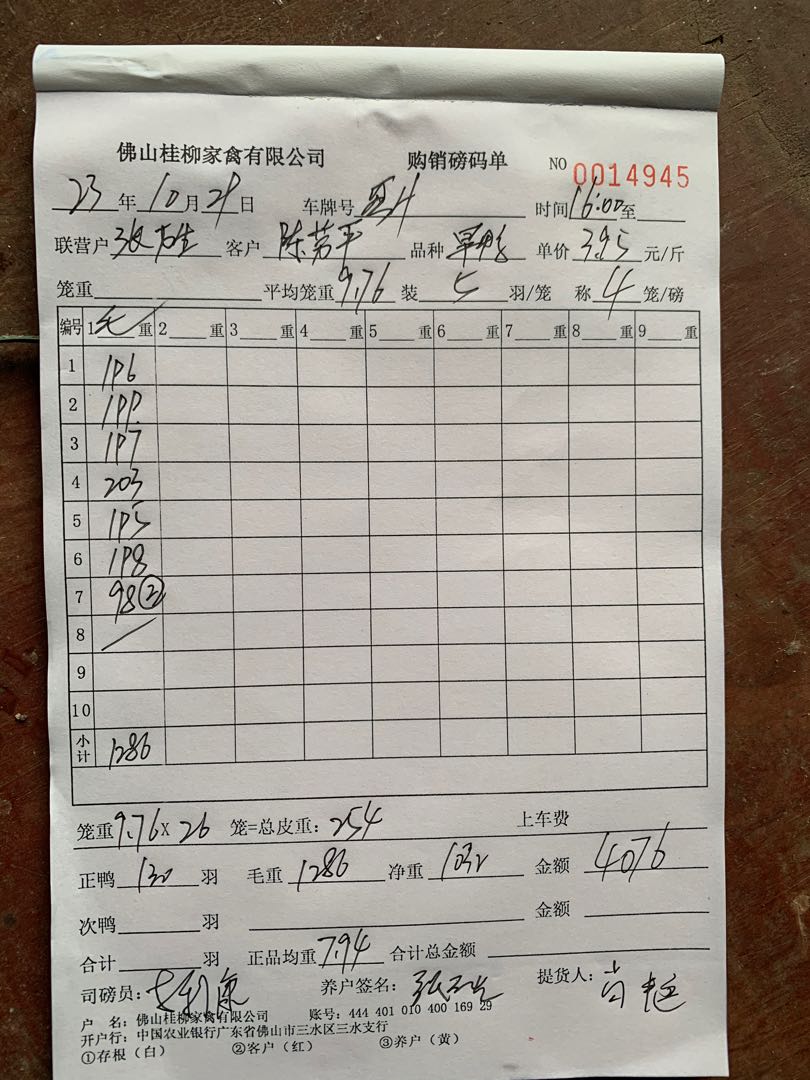 佛山桂柳家禽有限公司 购销磅码单 NO 0014945
23年10月29日 车牌号 时间16:00至
联营户 客户 陈芳平 品种 单价3.95元/斤
笼重 平均笼重9.76装5羽/笼 称4笼/磅
编号 1毛重 2重 3重 4重 5重 6重 7重 8重 9重
1 196
2 199
3 197
4 203
5 195
6 198
7 98②
8
9
10
小计 1286
笼重9.76×26 笼=总皮重:254 上车费
正鸭130羽 毛重1286 净重1032 金额4076
次鸭 羽 金额
合计 羽 正品均重7.94 合计总金额
司磅员: 养户签名: 提货人:
户 名:佛山桂柳家禽有限公司 账号:444 401 010 400 169 29
开户行:中国农业银行广东省佛山市三水区三水支行
①存根(白) ②客户(红) ③养户(黄)